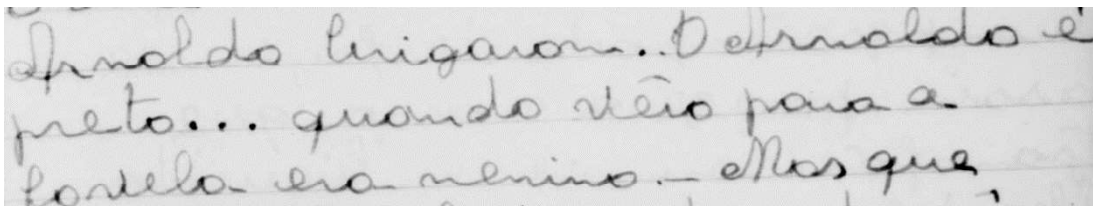 Arnaldo brigaram.. O Arnaldo é
preto... quando vêio para a
favela era menino. – Mas que,